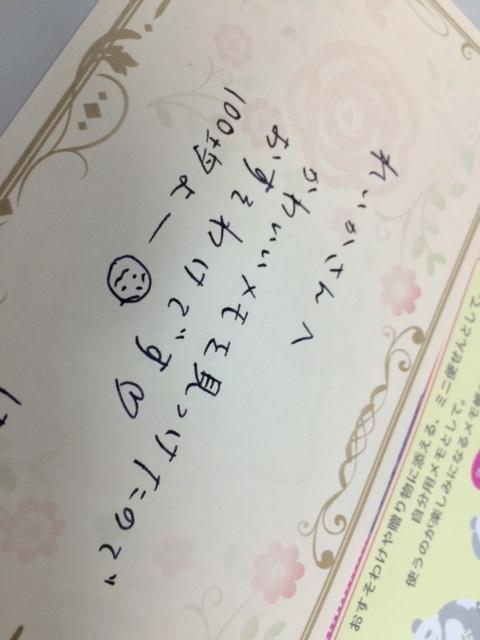 れいかさんへ
かわいいメモを見つけたので、
おすそわけです
100均よー
おすそわけや贈り物に添える、ミニ便せんとして、
自分用メモとして。
使うのが楽しみになるメモ帳